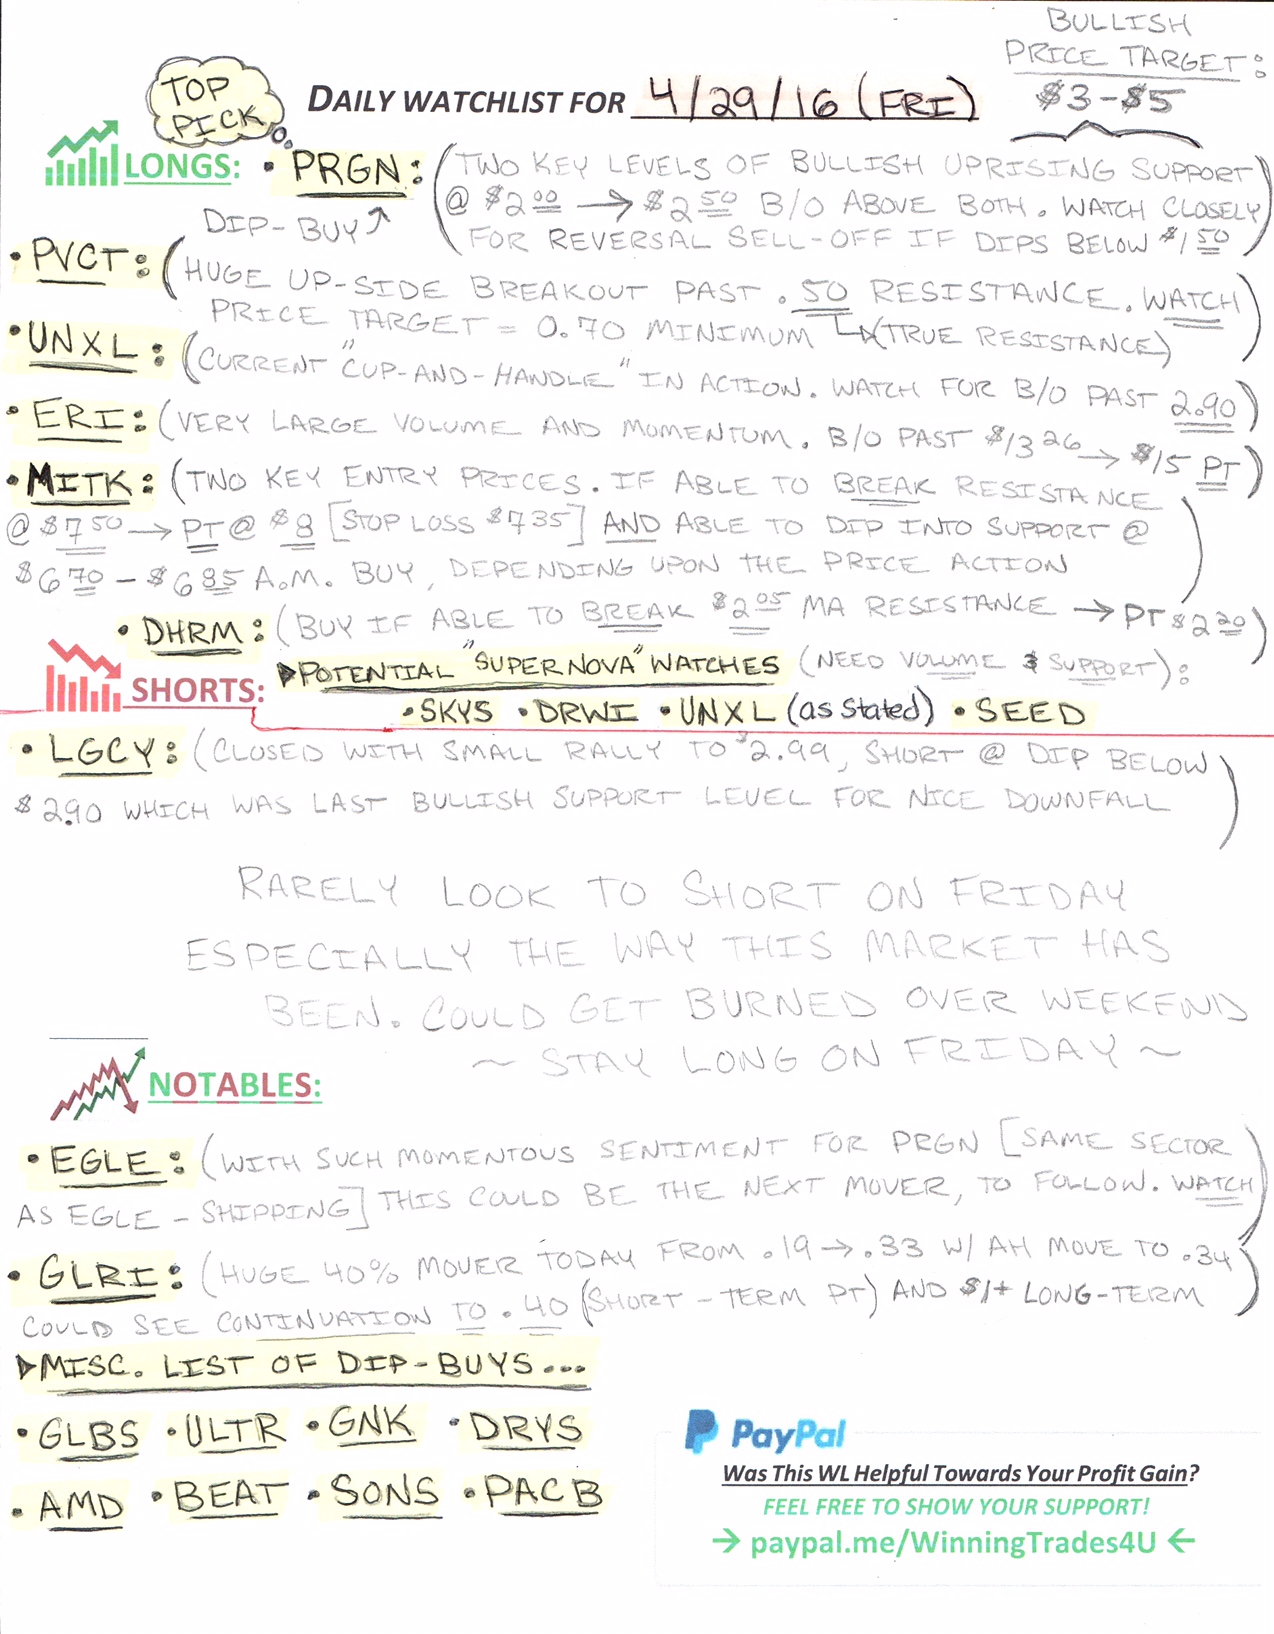 BULLISH
PRICE TARGET:
$3-$5
TOP
PICK
DAILY WATCHLIST FOR 4/29/16 (FRI)
LONGS: • PRGN: (TWO KEY LEVELS OF BULLISH UPRISING SUPPORT
@ $2.00 → $2.50 B/O ABOVE BOTH. WATCH CLOSELY
DIP-BUY FOR REVERSAL SELL-OFF IF DIPS BELOW $1.50)
• PVCT: (HUGE UP-SIDE BREAKOUT PAST .50 RESISTANCE. WATCH
PRICE TARGET = 0.70 MINIMUM ↳(TRUE RESISTANCE))
• UNXL: (CURRENT "CUP-AND-HANDLE" IN ACTION. WATCH FOR B/O PAST 2.90)
• ERI: (VERY LARGE VOLUME AND MOMENTUM. B/O PAST $13 26 → $15 PT)
• MITK: (TWO KEY ENTRY PRICES. IF ABLE TO BREAK RESISTANCE
@ $7 50 → PT @ $8 [STOP LOSS $7 35] AND ABLE TO DIP INTO SUPPORT @
$6 70 - $6 85 A.M. BUY, DEPENDING UPON THE PRICE ACTION)
• DHRM: (BUY IF ABLE TO BREAK $2 05 MA RESISTANCE → PT $2 20)
▶POTENTIAL "SUPERNOVA" WATCHES (NEED VOLUME & SUPPORT):
SHORTS:
• SKYS • DRWI • UNXL (as stated) • SEED
• LGCY: (CLOSED WITH SMALL RALLY TO $2.99, SHORT @ DIP BELOW
$2.90 WHICH WAS LAST BULLISH SUPPORT LEVEL FOR NICE DOWNFALL)
RARELY LOOK TO SHORT ON FRIDAY
ESPECIALLY THE WAY THIS MARKET HAS
BEEN. COULD GET BURNED OVER WEEKEND
~ STAY LONG ON FRIDAY ~
NOTABLES:
• EGLE: (WITH SUCH MOMENTOUS SENTIMENT FOR PRGN [SAME SECTOR
AS EGLE - SHIPPING] THIS COULD BE THE NEXT MOVER, TO FOLLOW. WATCH)
• GLRI: (HUGE 40% MOVER TODAY FROM .19 → .33 W/ AH MOVE TO .34
COULD SEE CONTINUATION TO .40 (SHORT-TERM PT) AND $1+ LONG-TERM)
▶MISC. LIST OF DIP-BUYS...
• GLBS • ULTR • GNK • DRYS
• AMD • BEAT • SONS • PACB
PayPal
Was This WL Helpful Towards Your Profit Gain?
FEEL FREE TO SHOW YOUR SUPPORT!
→ paypal.me/WinningTrades4U ←